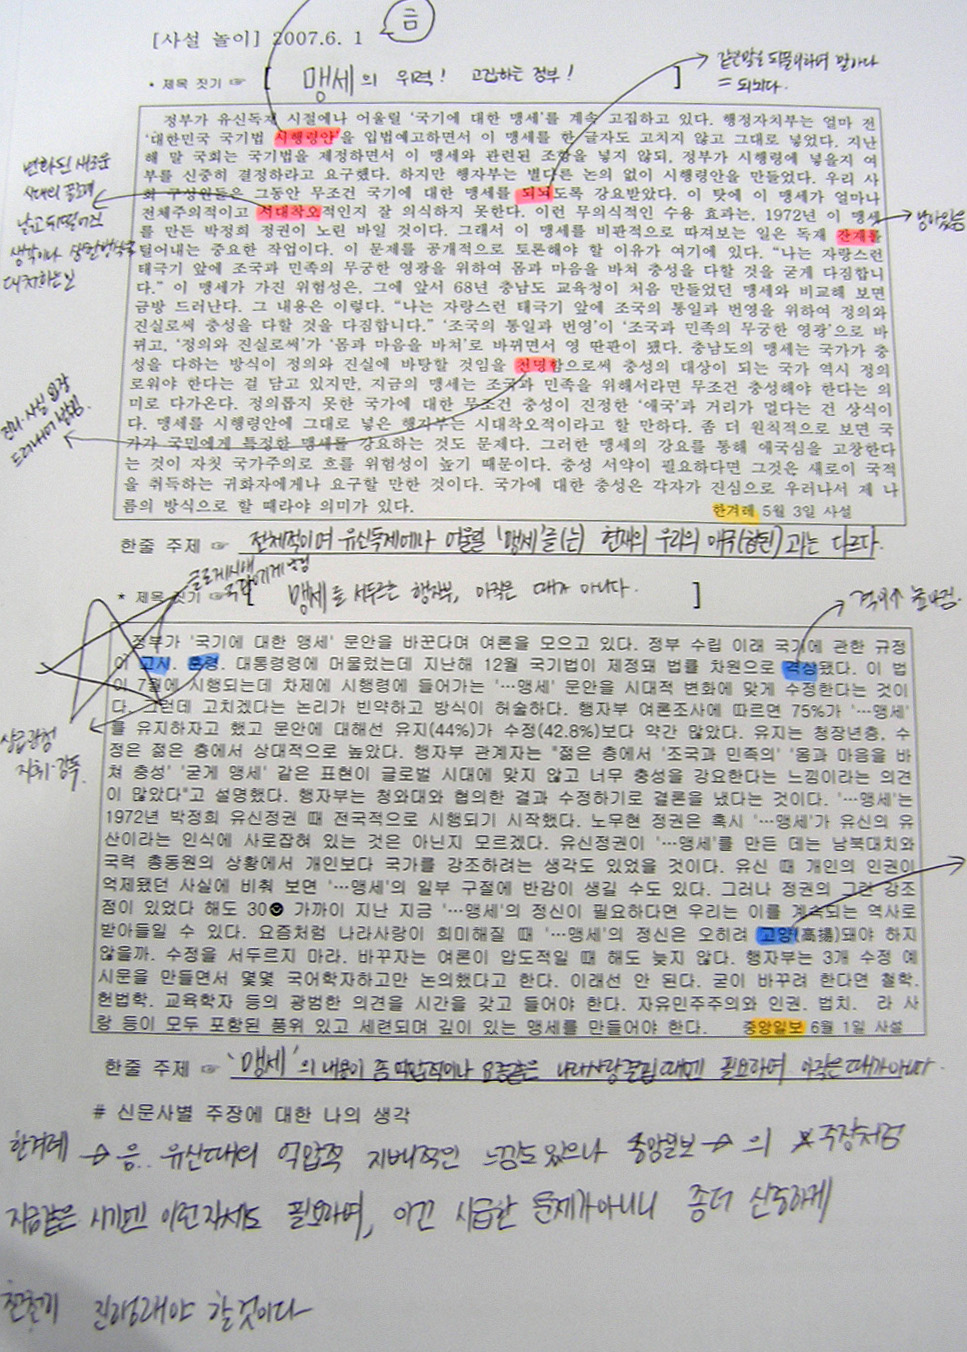 [사설 놀이] 2007.6. 1
금
• 제목 짓기 ☞ [ 맹세의 위력! 고집하는 정부! ]
같은말을 되풀이하여 말하다
= 되뇌다.
정부가 유신독재 시절에나 어울릴 '국기에 대한 맹세'를 계속 고집하고 있다. 행정자치부는 얼마 전
'대한민국 국기법 시행령안'을 입법예고하면서 이 맹세를 한 글자도 고치지 않고 그대로 넣었다. 지난
해 말 국회는 국기법을 제정하면서 이 맹세와 관련된 조항을 넣지 않되, 정부가 시행령에 넣을지 여
부를 신중히 결정하라고 요구했다. 하지만 행자부는 별다른 논의 없이 시행령안을 만들었다. 우리 사
회 구성원들은 그동안 무조건 국기에 대한 맹세를 되뇌도록 강요받았다. 이 탓에 이 맹세가 얼마나
전체주의적이고 시대착오적인지 잘 의식하지 못한다. 이런 무의식적인 수용 효과는, 1972년 이 맹세
를 만든 박정희 정권이 노린 바일 것이다. 그래서 이 맹세를 비판적으로 따져보는 일은 독재 잔재를
털어내는 중요한 작업이다. 이 문제를 공개적으로 토론해야 할 이유가 여기에 있다. "나는 자랑스런
태극기 앞에 조국과 민족의 무궁한 영광을 위하여 몸과 마음을 바쳐 충성을 다할 것을 굳게 다짐합니
다." 이 맹세가 가진 위험성은, 그에 앞서 68년 충남도 교육청이 처음 만들었던 맹세와 비교해 보면
금방 드러난다. 그 내용은 이렇다. "나는 자랑스런 태극기 앞에 조국의 통일과 번영을 위하여 정의와
진실로써 충성을 다할 것을 다짐합니다." '조국의 통일과 번영'이 '조국과 민족의 무궁한 영광'으로 바
뀌고, '정의와 진실로써'가 '몸과 마음을 바쳐'로 바뀌면서 영 딴판이 됐다. 충남도의 맹세는 국가가 충
성을 다하는 방식이 정의와 진실에 바탕할 것임을 천명함으로써 충성의 대상이 되는 국가 역시 정의
로워야 한다는 걸 담고 있지만, 지금의 맹세는 조국과 민족을 위해서라면 무조건 충성해야 한다는 의
미로 다가온다. 정의롭지 못한 국가에 대한 무조건 충성이 진정한 '애국'과 거리가 멀다는 건 상식이
다. 맹세를 시행령안에 그대로 넣은 행자부는 시대착오적이라고 할 만하다. 좀 더 원칙적으로 보면 국
가가 국민에게 특정한 맹세를 강요하는 것도 문제다. 그러한 맹세의 강요를 통해 애국심을 고창한다
는 것이 자칫 국가주의로 흐를 위험성이 높기 때문이다. 충성 서약이 필요하다면 그것은 새로이 국적
을 취득하는 귀화자에게나 요구할 만한 것이다. 국가에 대한 충성은 각자가 진심으로 우러나서 제 나
름의 방식으로 할 때라야 의미가 있다. 한겨레 5월 3일 사설
변화된 새로운
시대의
낡고 뒤떨어진
생각이나 생활방식으로
대처하는
남아있음
진리·사실·입장
드러내어 밝힘.
한줄 주제 ☞ 전체적이며 유신독제에나 어울릴 '맹세'를(는) 현재의 우리의 애국( )과는 다르다.
* 제목 짓기 ☞ [ 맹세를 서두르는 행자부, 아직은 때가 아니다. ]
격이↑ 높아짐.
정부가 '국기에 대한 맹세' 문안을 바꾼다며 여론을 모으고 있다. 정부 수립 이래 국기에 관한 규정
이 고시, 훈령, 대통령령에 머물렀는데 지난해 12월 국기법이 제정돼 법률 차원으로 격상됐다. 이 법
이 7월에 시행되는데 차제에 시행령에 들어가는 '…맹세' 문안을 시대적 변화에 맞게 수정한다는 것이
다. 그런데 고치겠다는 논리가 빈약하고 방식이 허술하다. 행자부 여론조사에 따르면 75%가 '…맹세'
를 유지하자고 했고 문안에 대해선 유지(44%)가 수정(42.8%)보다 약간 많았다. 유지는 청장년층, 수
정은 젊은 층에서 상대적으로 높았다. 행자부 관계자는 "젊은 층에서 '조국과 민족의' '몸과 마음을 바
쳐 충성' '굳게 맹세' 같은 표현이 글로벌 시대에 맞지 않고 너무 충성을 강요한다는 느낌이라는 의견
이 많았다"고 설명했다. 행자부는 청와대와 협의한 결과 수정하기로 결론을 냈다는 것이다. '…맹세'는
1972년 박정희 유신정권 때 전국적으로 시행되기 시작했다. 노무현 정권은 혹시 '…맹세'가 유신의 유
산이라는 인식에 사로잡혀 있는 것은 아닌지 모르겠다. 유신정권이 '…맹세'를 만든 데는 남북대치와
국력 총동원의 상황에서 개인보다 국가를 강조하려는 생각도 있었을 것이다. 유신 때 개인의 인권이
억제됐던 사실에 비춰 보면 '…맹세'의 일부 구절에 반감이 생길 수도 있다. 그러나 정권의 그런 강조
점이 있었다 해도 30 가까이 지난 지금 '…맹세'의 정신이 필요하다면 우리는 이를 계속되는 역사로
받아들일 수 있다. 요즘처럼 나라사랑이 희미해질 때 '…맹세'의 정신은 오히려 고양(高揚)돼야 하지
않을까. 수정을 서두르지 마라. 바꾸자는 여론이 압도적일 때 해도 늦지 않다. 행자부는 3개 수정 예
시문을 만들면서 몇몇 국어학자하고만 논의했다고 한다. 이래선 안 된다. 굳이 바꾸려 한다면 철학,
헌법학, 교육학자 등의 광범한 의견을 시간을 갖고 들어야 한다. 자유민주주의와 인권, 법치, 라 사
랑 등이 모두 포함된 품위 있고 세련되며 깊이 있는 맹세를 만들어야 한다. 중앙일보 6월 1일 사설
상급관청
지휘·감독.
한줄 주제 ☞ '맹세'의 내용이 좀 억압적이나 요즘같은 나라사랑 때엔 필요하며 아직은 때가 아니다.
# 신문사별 주장에 대한 나의 생각
한겨레 → 음.. 유신때의 억압적 지배적인 느낌도 있으나 중앙일보 → 의 주장처럼
지금같은 시기엔 이런자세도 필요하며, 이건 시급한 문제가아니니 좀더 신중하게
천천히 진행돼야 할것이다